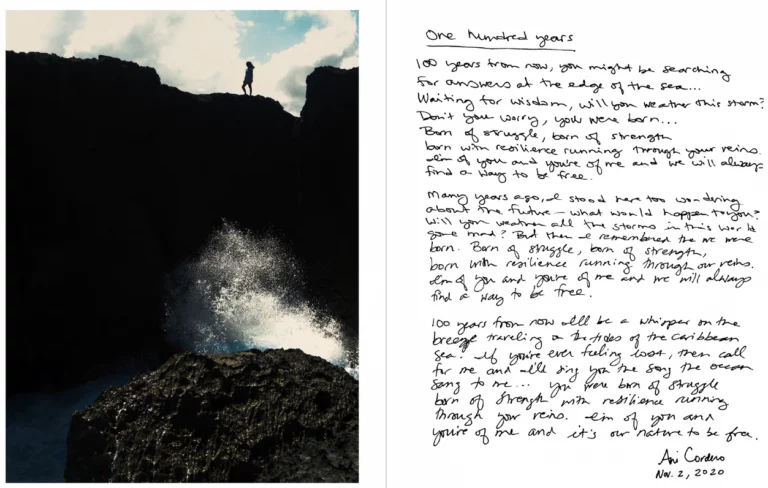 One hundred years
100 years from now, you might be searching
for answers at the edge of the sea...
Waiting for wisdom, will you weather this storm?
Don't you worry, you were born...
Born of struggle, born of strength
born with resilience running through your veins.
I'm of you and you're of me and we will always
find a way to be free.
Many years ago, I stood here too wondering
about the future — what would happen to you?
Will you weather all the storms in this world
gone mad? But then I remembered the we were
born. Born of struggle, born of strength,
born with resilience running through our veins.
I'm of you and you're of me and we will always
find a way to be free.
100 years from now I'll be a whisper on the
breeze traveling on the tides of the Caribbean
Sea. If you're ever feeling lost, then call
for me and I'll sing you the song the ocean
sang to me... you were born of struggle
born of strength with resilience running
through your veins. I'm of you and
you're of me and it's our nature to be free.
Ani Cordero
Nov. 2, 2020